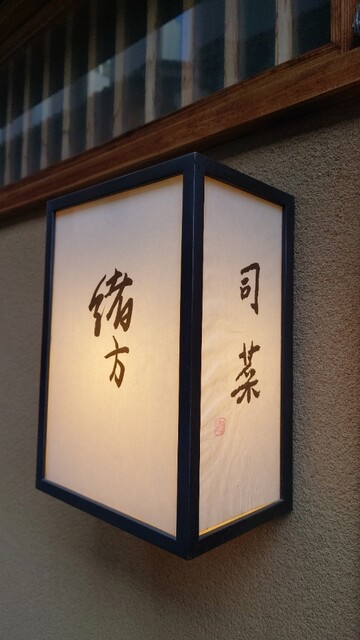 緒方
司菜